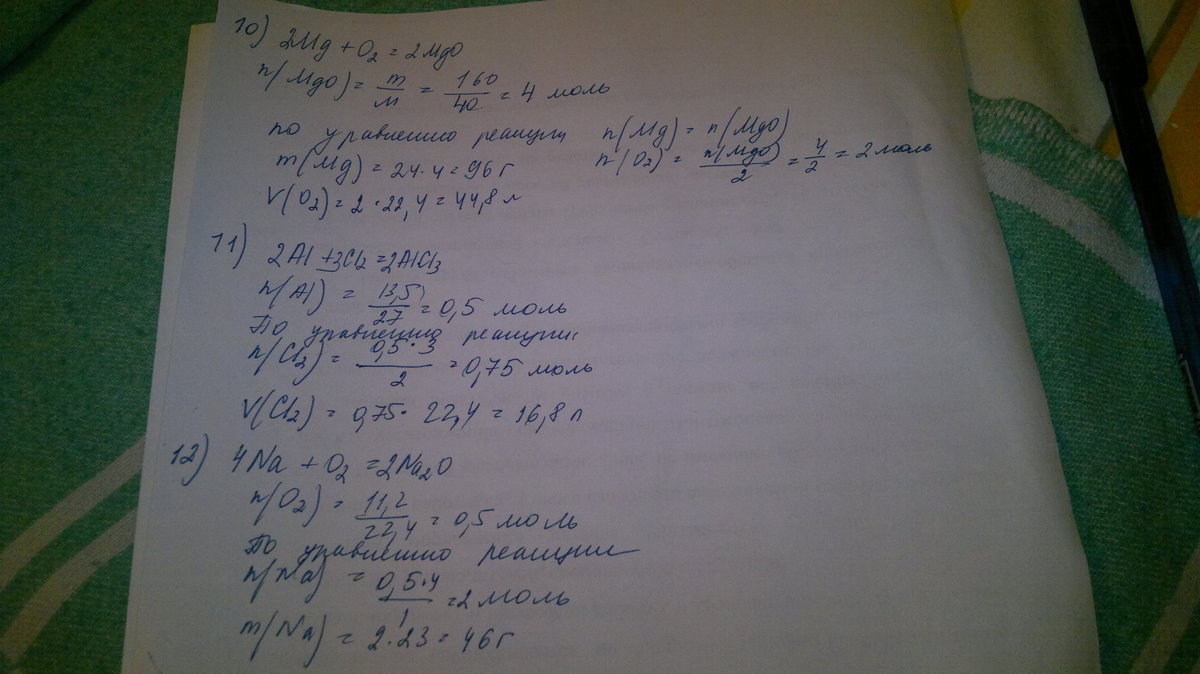 10) 2Mg + O2 = 2MgO
n(MgO) = m/M = 160/40 = 4 моль
по уравнению реакции n(Mg) = n(MgO)
m(Mg) = 24·4 = 96 г n(O2) = n(MgO)/2 = 4/2 = 2 моль
V(O2) = 2·22,4 = 44,8 л
11) 2Al + 3Cl2 = 2AlCl3
n(Al) = 13,5/27 = 0,5 моль
По уравнению реакции
n(Cl2) = 0,5·3/2 = 0,75 моль
V(Cl2) = 0,75·22,4 = 16,8 л
12) 4Na + O2 = 2Na2O
n(O2) = 11,2/22,4 = 0,5 моль
По уравнению реакции
n(Na) = 0,5·4/1 = 2 моль
m(Na) = 2·23 = 46 г